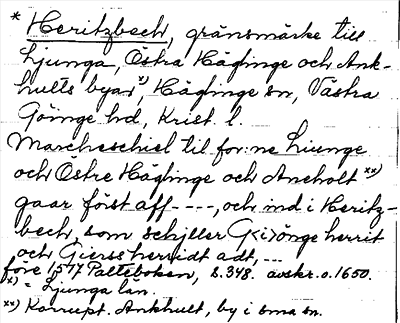 * Heritzbech, gränsmärke till
Ljunga, Östra Häglinge och Ank-
hults byar x), Häglinge sn, Västra
Göinge hd, Krist. l.
Marcheschiel til for:ne Liunge
och Östre Häglinge och Ancholt xx)
gaar först aff - - - -, och ind i Heritz-
bech, som schjller G<i>önge herrit
och Gierssherridt adt, ...
före 1577 Palteboken, s. 348. avskr. o. 1650.
x) = Ljunga län.
xx) Korrupt. Ankhult, by i sma sn.